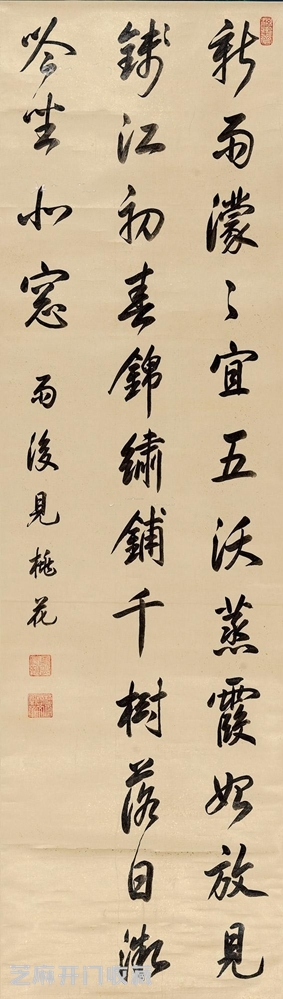 新雨濛〻宜五沃蒸霞始放見
錢江初春錦繡鋪千樹落日微
吟坐小窓
雨後見桃花
芝麻开门收藏